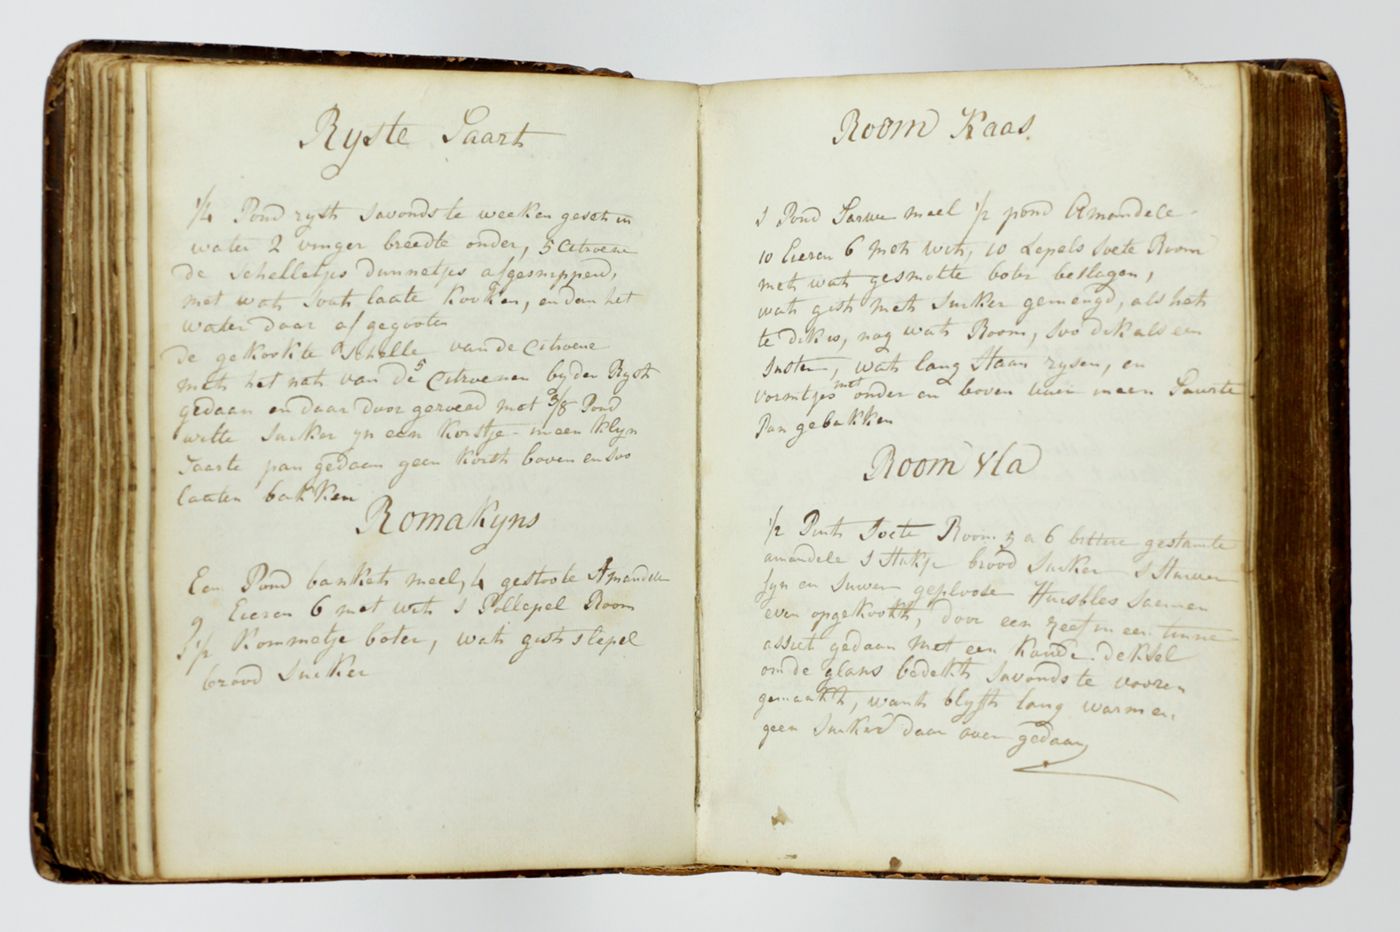 Ryste Taart
1/4 Pond ryst savonds te weeken geset in
water 2 vinger breedte onder, 5 Citroene
de schelletjes dunnetjes afgesnippend,
met wat sout laate kooken, en dan het
water daar af gegooten
de gekookte schelle van de Citroene
met het nat van de 5 Citroenen by den Ryst
gedaan en daar door geroerd met 3/8 Pond
witte suiker yn een korstje in een klyn
Taarte pan gedaan geen korst boven en soo
laaten bakken
Romakyns
Een Pond bankets meel, 4 gestoote Amandele
9 Eieren 6 met wit 1 Pollepel Room
1 1/2 Kommetje boter, wat gist 1 lepel
brood suiker
Room Kaas.
1 Pond Tarwe meel 1/2 pond Amandele
10 Eieren 6 met wit, 10 Lepels soete Room
met wat gesmolte boter beslagen,
wat gist met suiker gemengd, als het
te dik is, nog wat Room, soo dik als een
, wat lang staan rysen, en
vormtjes met onder en boven vuur in een Taarte
Pan gebakken
Room Vla
1/2 Pint soete Room 5 a 6 bittere gestamte
amandele 1 stukje brood suiker 1
fyn en geploode saemen
even opgekookt, door een zeef in een tinne
assiet gedaan met een koude deksel
om de glans bedekt savonds te vooren
gemaakt, want blyft lang warm en
geen suiker daar over gedaan